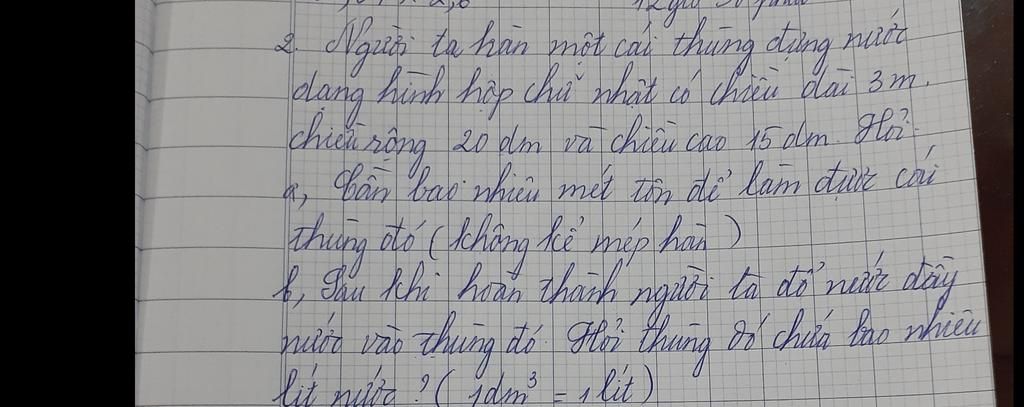 12 giờ 30 phút
2. Người ta hàn một cái thùng đựng nước
dạng hình hộp chữ nhật có chiều dài 3m.
chiều rộng 20 dm và chiều cao 15 dm. Hỏi.
a, Cần bao nhiêu mét tôn để làm được cái
thùng đó (không kể mép hàn)
b, Sau khi hoàn thành người ta đổ nước đầy
nước vào thùng đó. Hỏi thùng đó chứa bao nhiêu
lít nước? (1dm³ = 1 lít)